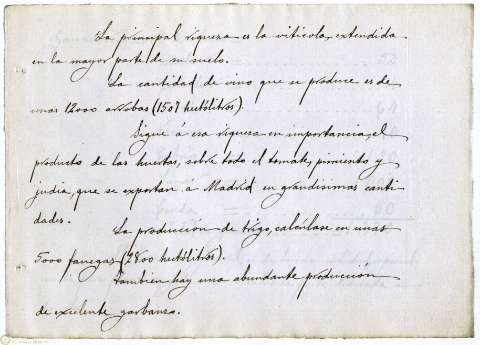 La principal riqueza es la vitícola, extendida
en la mayor parte de su suelo.
La cantidad de vino que se produce es de
unas 12000 arrobas (1507 hectólitros).
Sigue á esa riqueza en importancia, el
producto de las huertas, sobre todo el tomate, pimiento y
judía, que se exportan á Madrid en grandísimas canti-
dades.
La producción de trigo, calcúlase en unas
5000 fanegas (2800 hectólitros).
También hay una abundante producción
de excelente garbanzo.